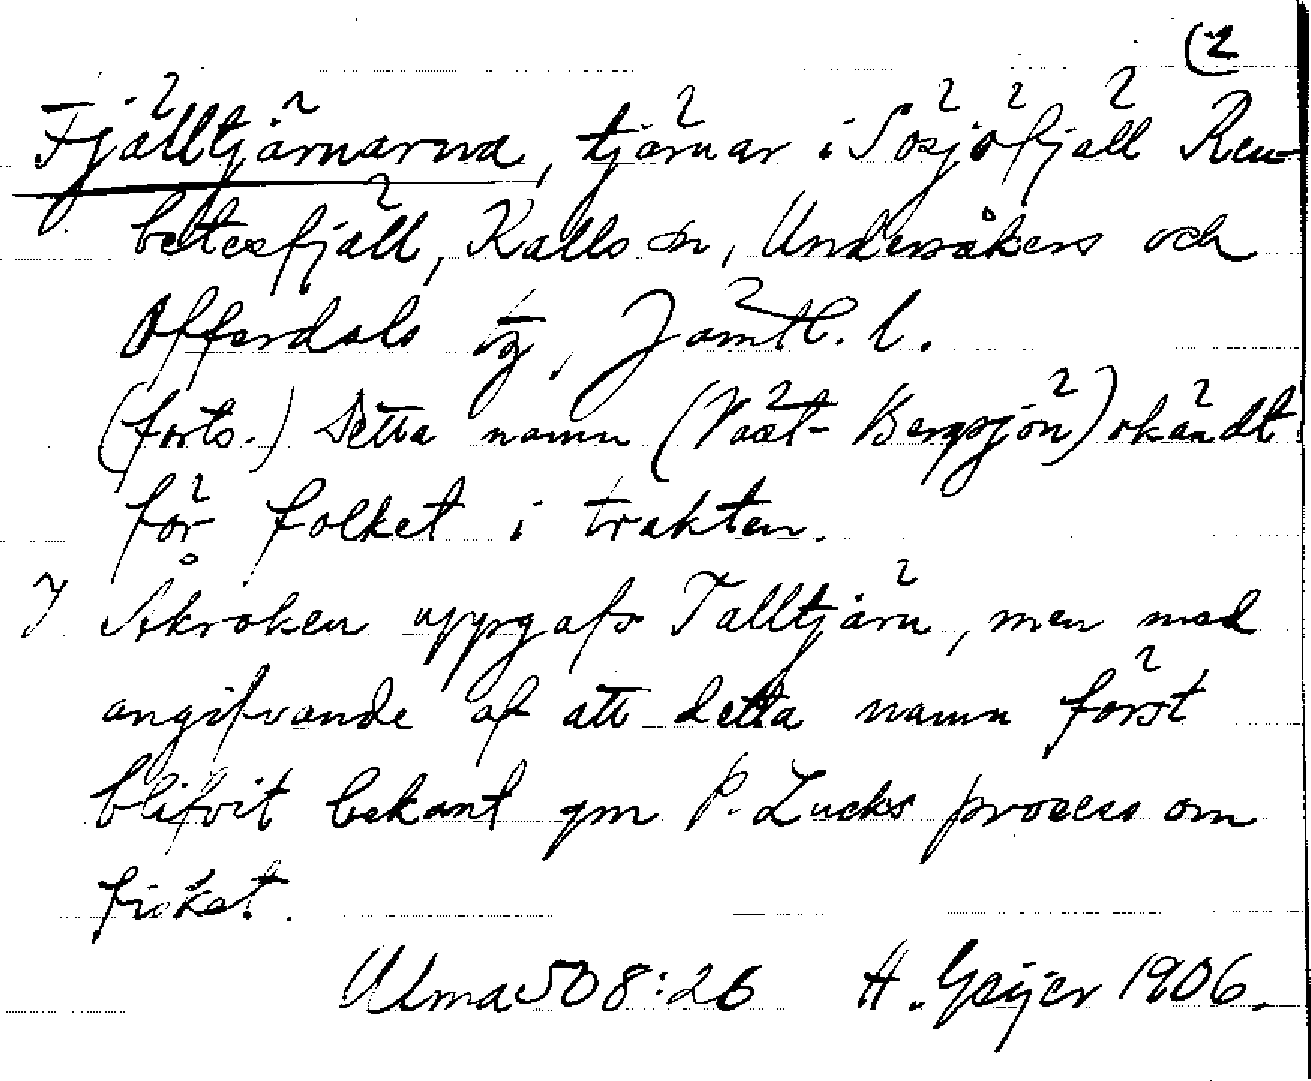 (2
Fjälltjärnarna, tjärnar i Sösjöfjäll Ren-
betesfjäll, Kalls sn, Undersåkers och
Offerdals tg, Jämtl. l.
(forts.) Detta namn (Väst-Bergsjön) okändt
för folket i trakten.
I Åkroken uppgafs Talltjärn, men med
angifvande af att detta namn först
blifvit bekant gm P. Zucks process om
fisket.
Ulma 508:26 H. Geijer 1906.